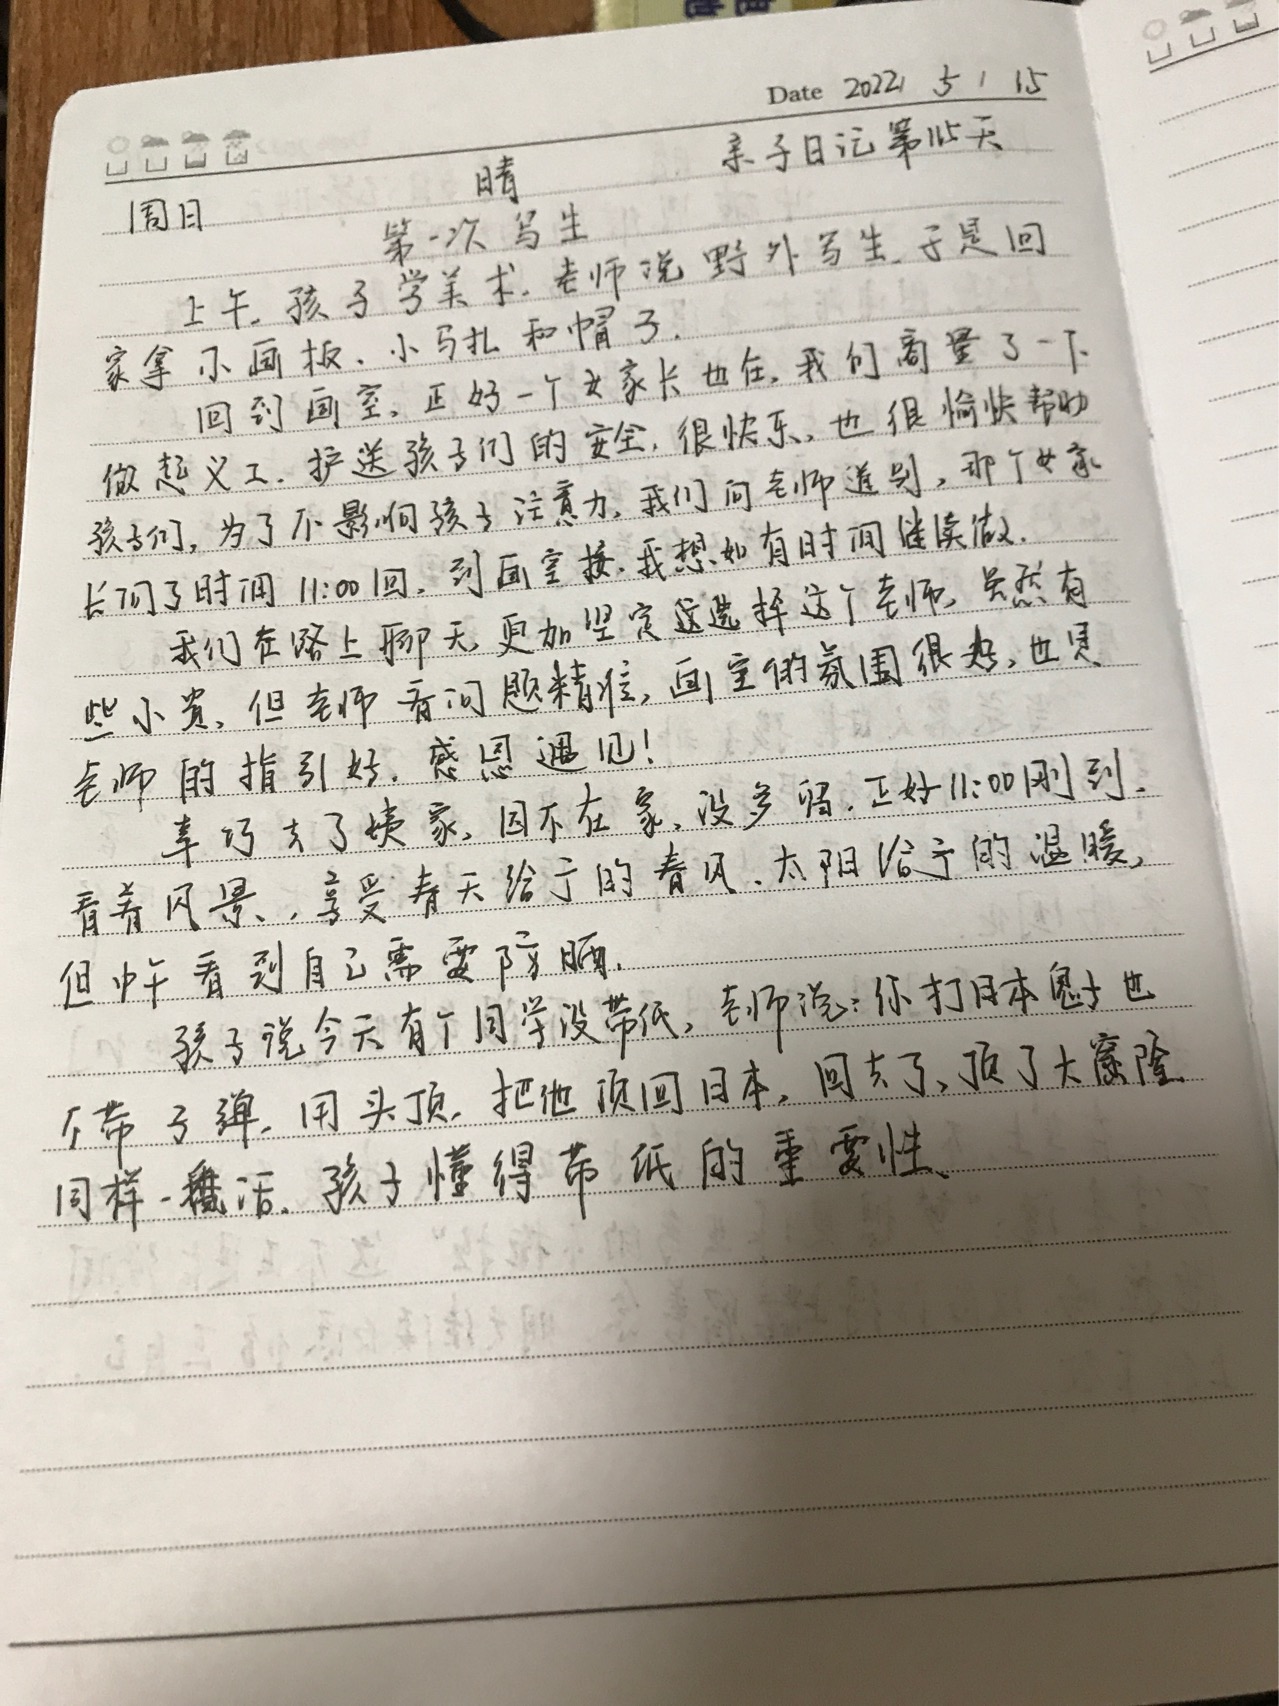 Date 2022 5 15
亲子日记第115天
周日 晴
第一次写生
上午,孩子学美术,老师说野外写生,于是回
家拿了画板、小马扎和帽子.
回到画室,正好一个女家长也在,我们商量了一下
做起义工,护送孩子们的安全,很快乐,也很愉快帮助
孩子们,为了不影响孩子注意力,我们向老师道别,那个女家
长问了时间11:00回,到画室接,我想如有时间继续做.
我们在路上聊天,更加坚定选择这个老师,虽然有
些小贵,但老师看问题精准,画室的氛围很,也是
老师的指引好,感恩遇见!
幸巧去了姨家,因不在家,没多留,正好11:00刚到.
看着风景,享受春天给予的春风、太阳给予的温暖,
但中午看到自己需要防晒.
孩子说今天有个同学没带纸,老师说:你打日本鬼子也
不带子弹,用头顶,把他顶回日本,回去了,顶了大窟窿
同样一种活,孩子懂得带纸的重要性、